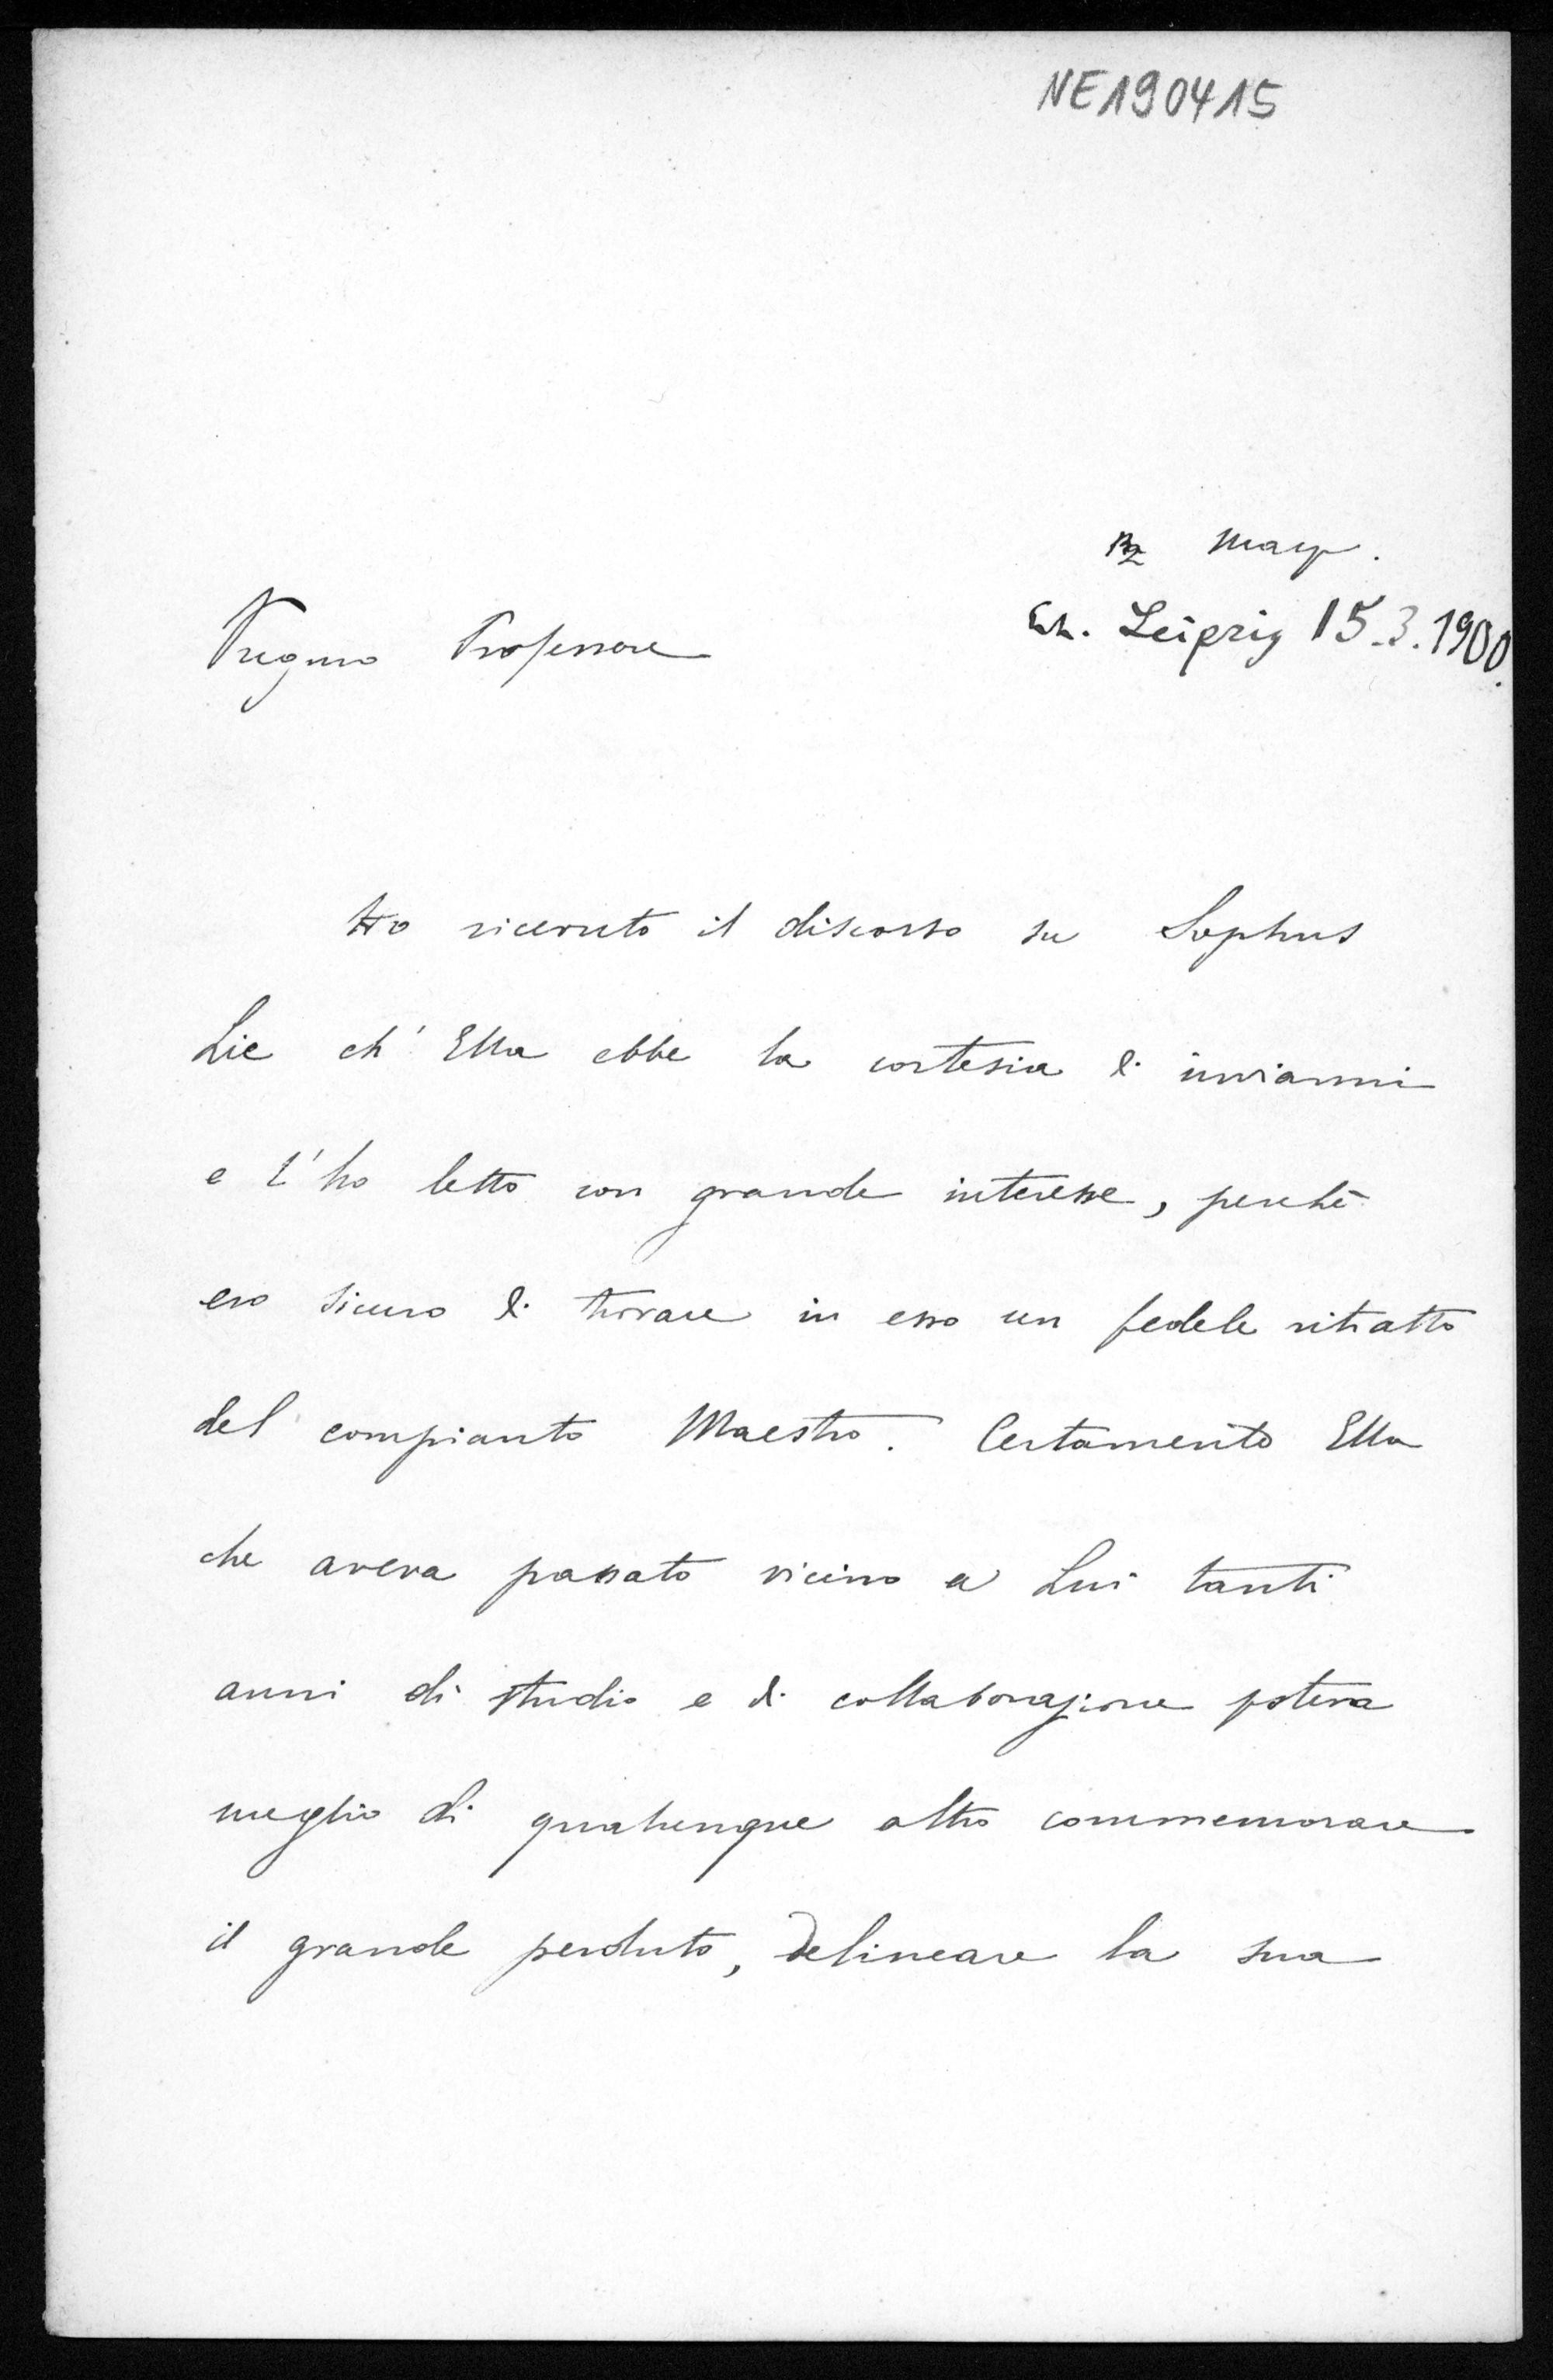 NE190415
Marz.
Erh. Leipzig 15.3.1900.
Pregmo Professore
Ho ricevuto il discorso su Sophus
Lie ch' Ella ebbe la cortesia di inviarmi
e l'ho letto con grande interesse, perchè
ero sicuro di trovare in esso un fedele ritratto
del compianto Maestro. Certamente Ella
che aveva passato vicino a Lui tanti
anni di studio e di collaborazione poteva
meglio di qualunque altro commemorare
il grande perduto, delineare la sua